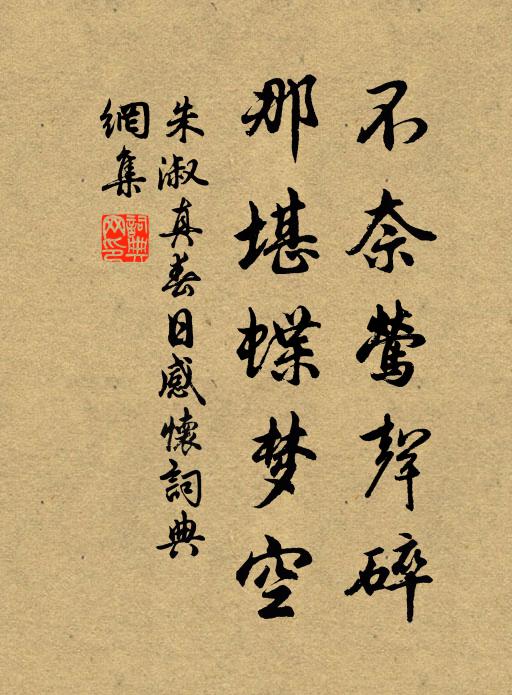 不奈鶯聲碎
那堪蝶梦空
朱淑真春日感懷詞典
網集
詞典
网印